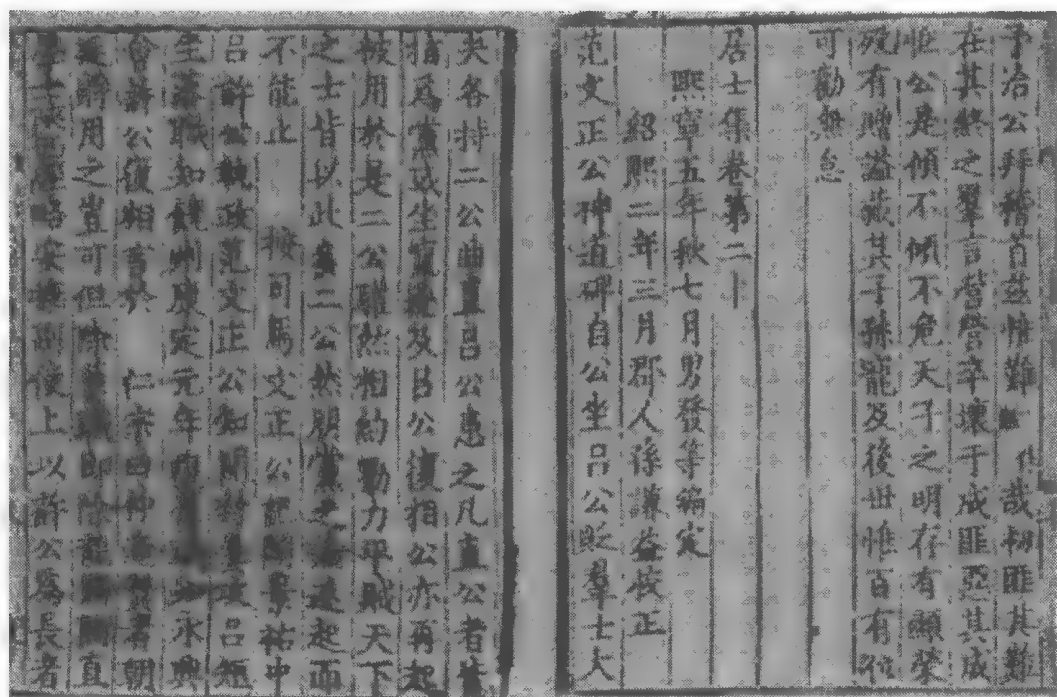 予治公拜稽首茲惟難哉初匪其難
在其終之羣言營營卒壞于成匪惡其成
惟公是傾不傾不危天子之明存有顯榮
歿有贈諡藏其子孫寵及後世惟百有位
可勸無怠
居士集卷第二十
熙寧五年秋七月男發等編定
紹熙二年三月郡人孫謙益校正
范文正公神道碑自公坐呂公貶羣士大
夫各持二公曲直呂公患之凡直公者皆
指爲黨或坐竄逐及呂公復相公亦再起
被用於是二公驩然相約勠力平賊天下
之士皆以此多二公然朋黨之論遂起而
不能止 按司馬文正公記聞景祐中
呂許公執政范文正公知開封屢攻呂短
坐落職知饒州康定元年復舊職知永興
會許公復相言於 仁宗曰仲淹賢者朝
廷將用之豈可但除舊職即除龍圖閣直
學士陝西經略安撫副使上以許公爲長者